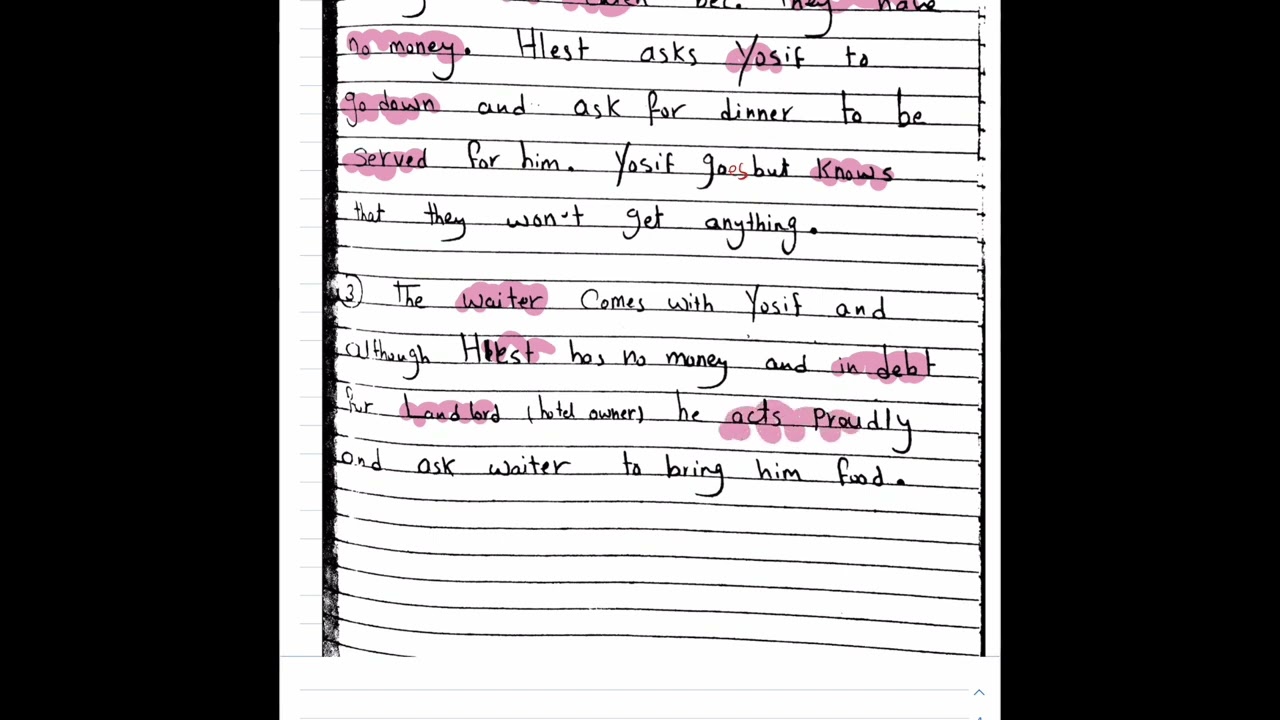 bec. they have
no money. Hlest asks Yosif to
go down and ask for dinner to be
served for him. Yosif goes but knows
that they won't get anything.
③ The waiter comes with Yosif and
although Hlest has no money and in debt
for Landlord (hotel owner) he acts Proudly
and ask waiter to bring him food.